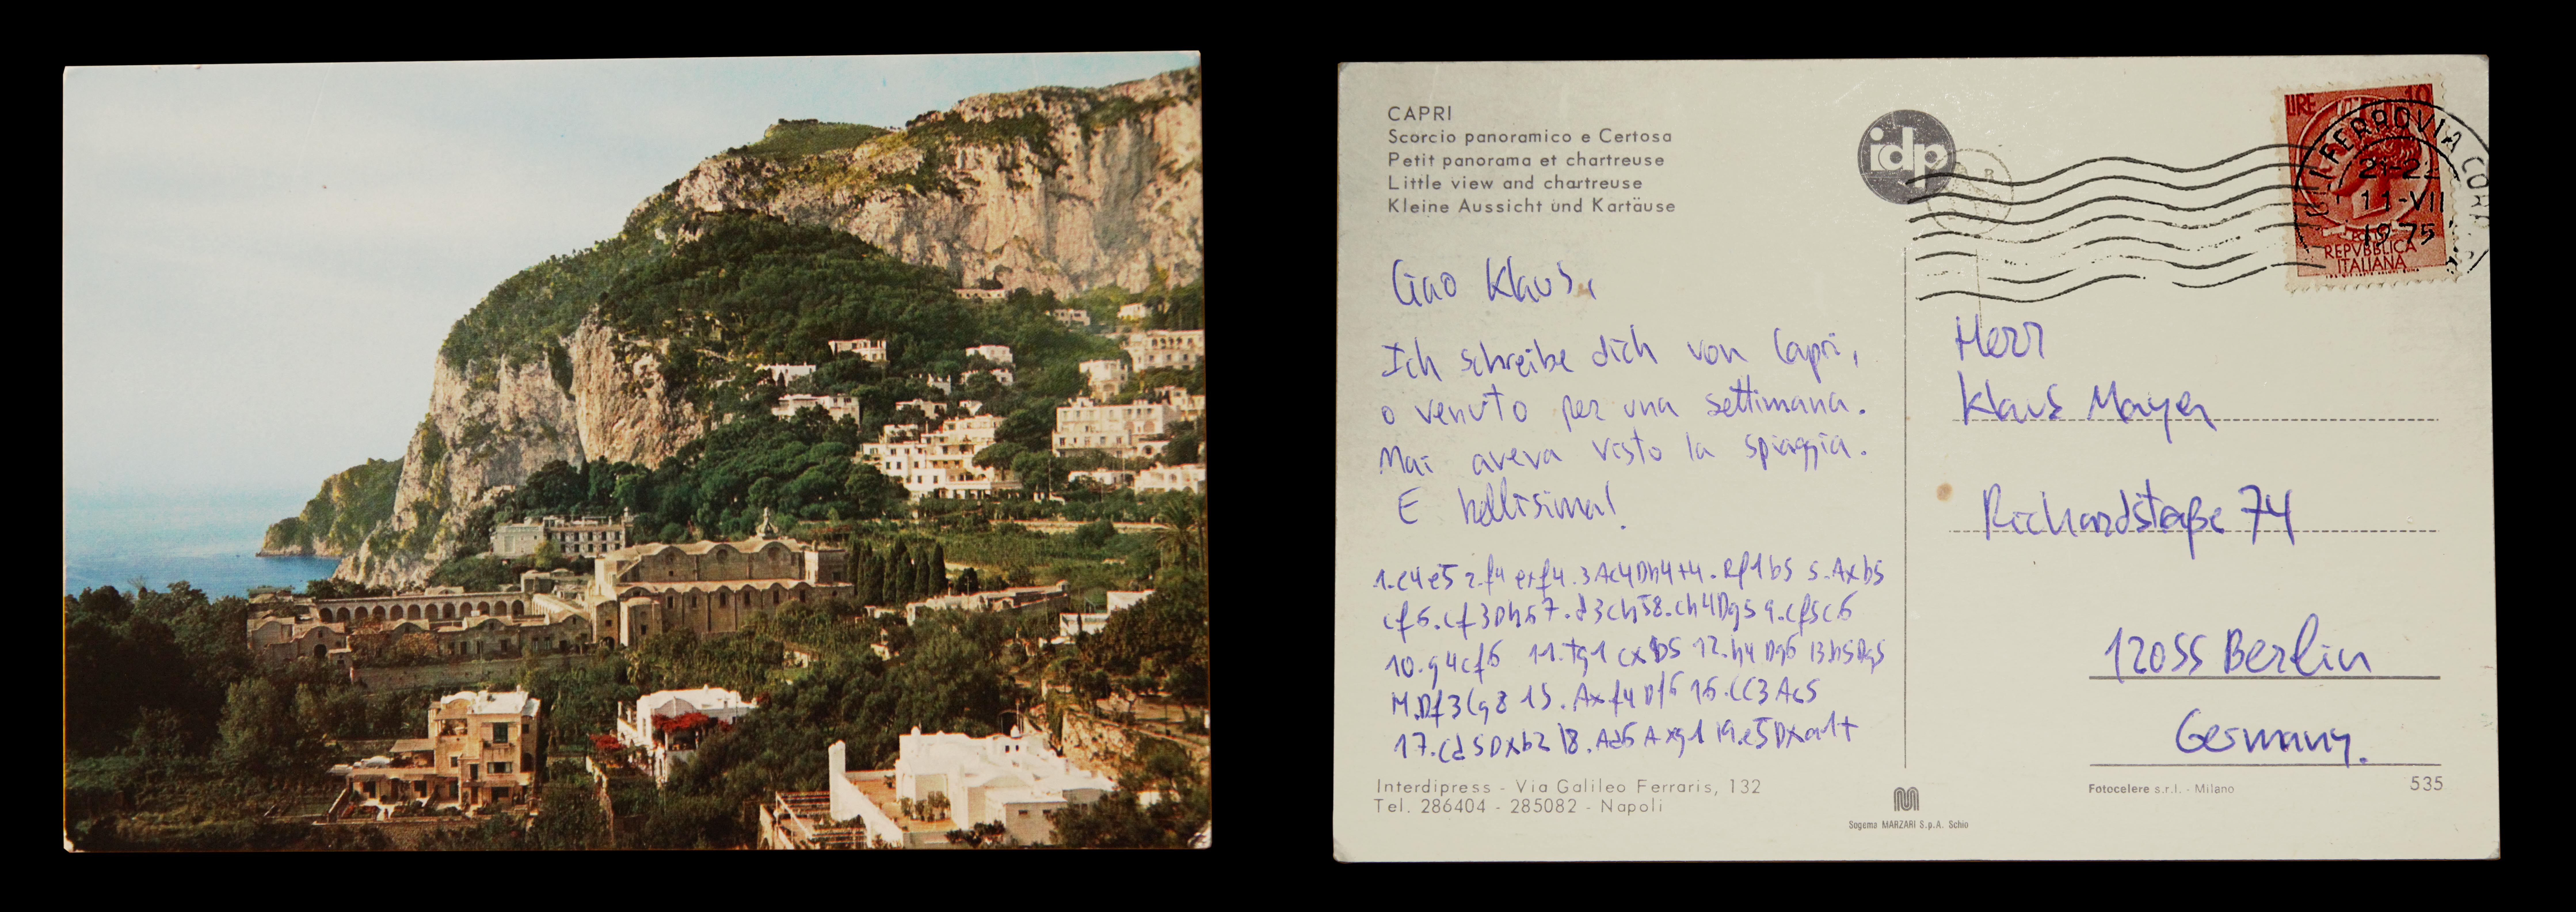 CAPRI
Scorcio panoramico e Certosa
Petit panorama et chartreuse
Little view and chartreuse
Kleine Aussicht und Kartäuse
idp
LIRE 10
FERROVIA
21-22
11-VII
1975
REPVBBLICA
ITALIANA
Ciao Klaus,
Ich schreibe dich von Capri,
o venuto per una settimana.
Mai aveva visto la spiaggia.
E bellisima!
1.e4e5 2.f4 exf4.3Ac4Dh4+4.Rf1b5 5.Axb5
cf6.cf3Dh67.d3ch58.ch4Dg59.cf5c6
10.g4cf6 11.tg1 cxb5 12.h4 Dg6 13h5Dg5
14.Df3Cg8 15.Axf4Df6 16.CC3Ac5
17.Cd5Dxb2 18.Ad6Axg1 19.e5Dxa1+
Herr
Klaus Mayer
Richardstraße 74
12055 Berlin
Germany.
Interdipress - Via Galileo Ferraris, 132
Tel. 286404 - 285082 - Napoli
Sogema MARZARI S.p.A. Schio
Fotocelere s.r.l. - Milano
535